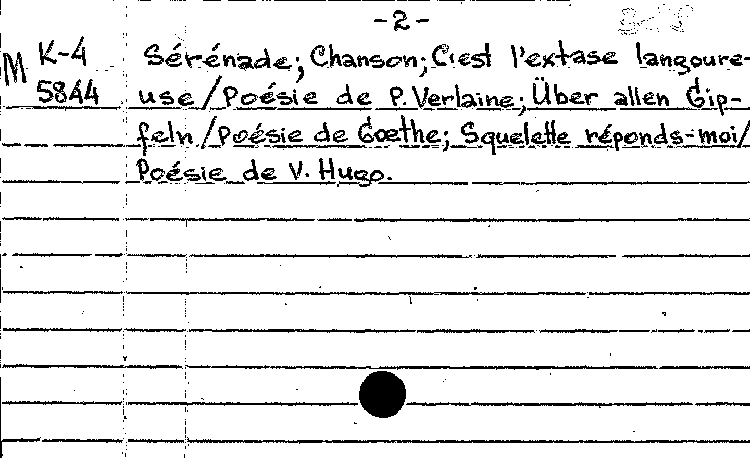 -2-
M K-4 Sérénade; Chanson; C'est l'extase langoure-
5844 use/Poésie de P. Verlaine; Über allen Gip-
feln/Poésie de Gœthe; Squelette réponds-moi/
Poésie de V. Hugo.